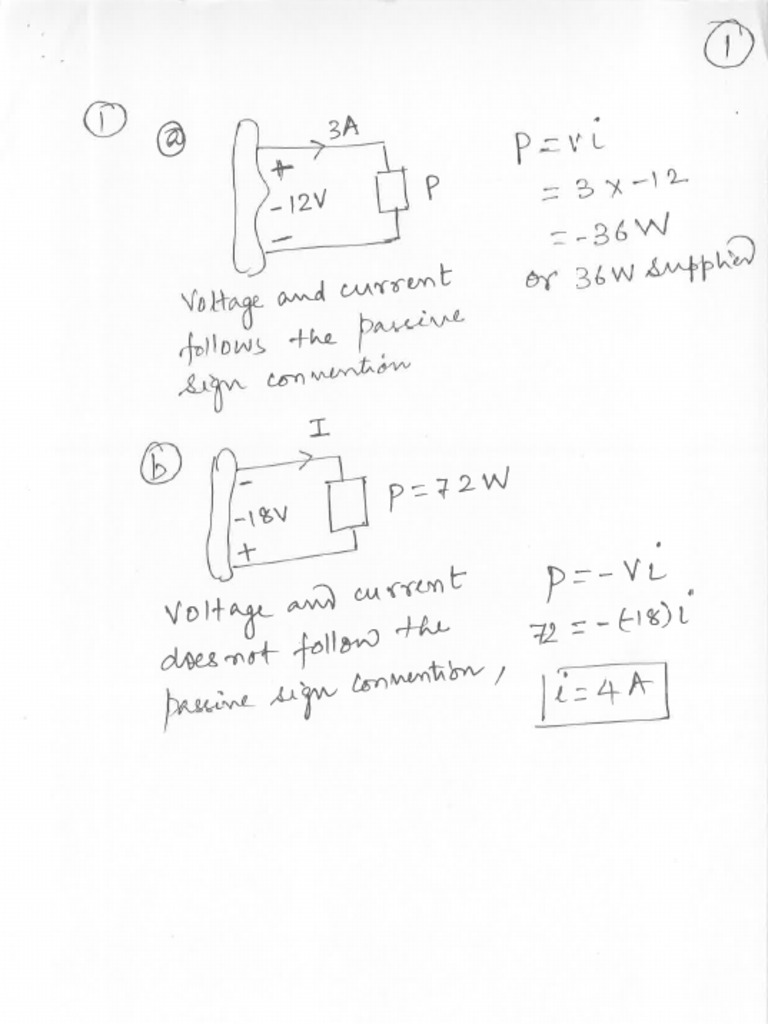 1
1
a
3A
+
-12V
-
P
P = vi
= 3 x -12
= -36W
or 36W supplied
Voltage and current
follows the passive
sign convention
b
I
-
-18V
+
P = 72W
Voltage and current
does not follow the
passive sign convention,
P = - Vi
72 = -(-18)i
i = 4A